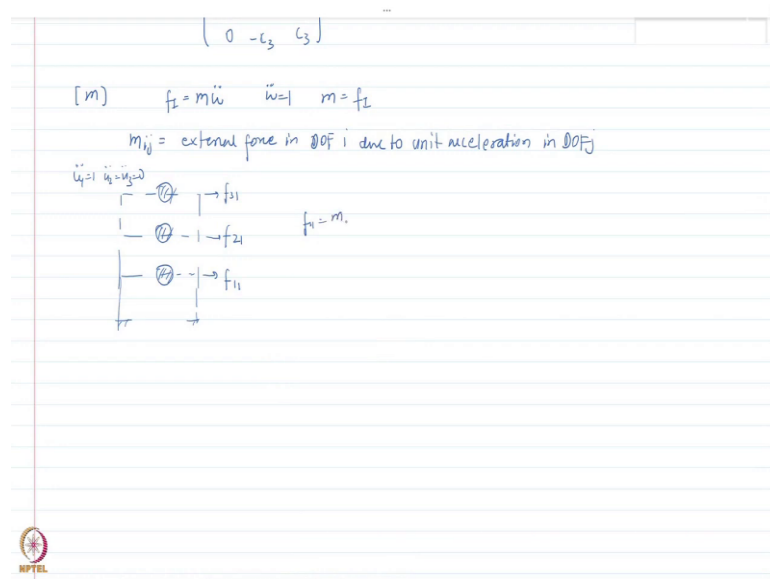 0 -c₃ c₃
[m] f_I = mü ü=1 m = f_I
m_ij = external force in DOF i due to unit acceleration in DOF j
ü₁=1 ü₂=ü₃=0
→ f₃₁
→ f₂₁ f₁₁ = m₁
→ f₁₁
NPTEL